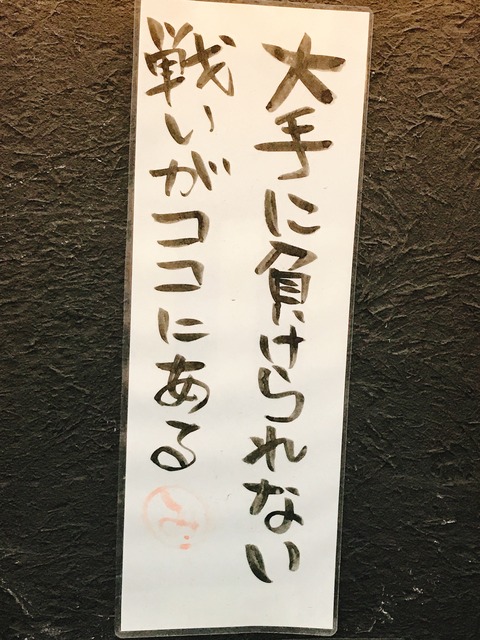 大手に負けられない
戦いがココにある